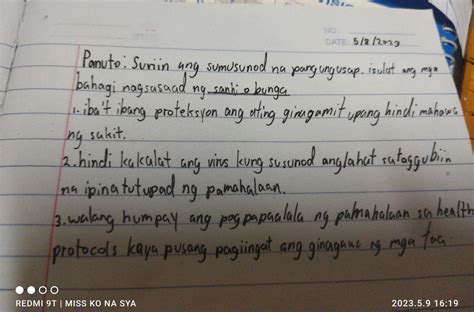 NO:
DATE: 5/8/2023
Panuto: Suriin ang sumusunod na pangungusap. isulat ang mga
bahagi nagsasaad ng sanhi o bunga
1. iba't ibang proteksyon ang ating ginagamit upang hindi mahawa
ng sakit.
2. hindi kakalat ang virus kung susunod ang lahat sa taggubiin
na ipinatutupad ng pamahalaan.
3. walang humpay ang pagpapaalala ng pamahalaan sa health
protocols kaya pusang pagiingat ang ginagawa ng mga tao.
REDMI 9T | MISS KO NA SYA
2023.5.9 16:19